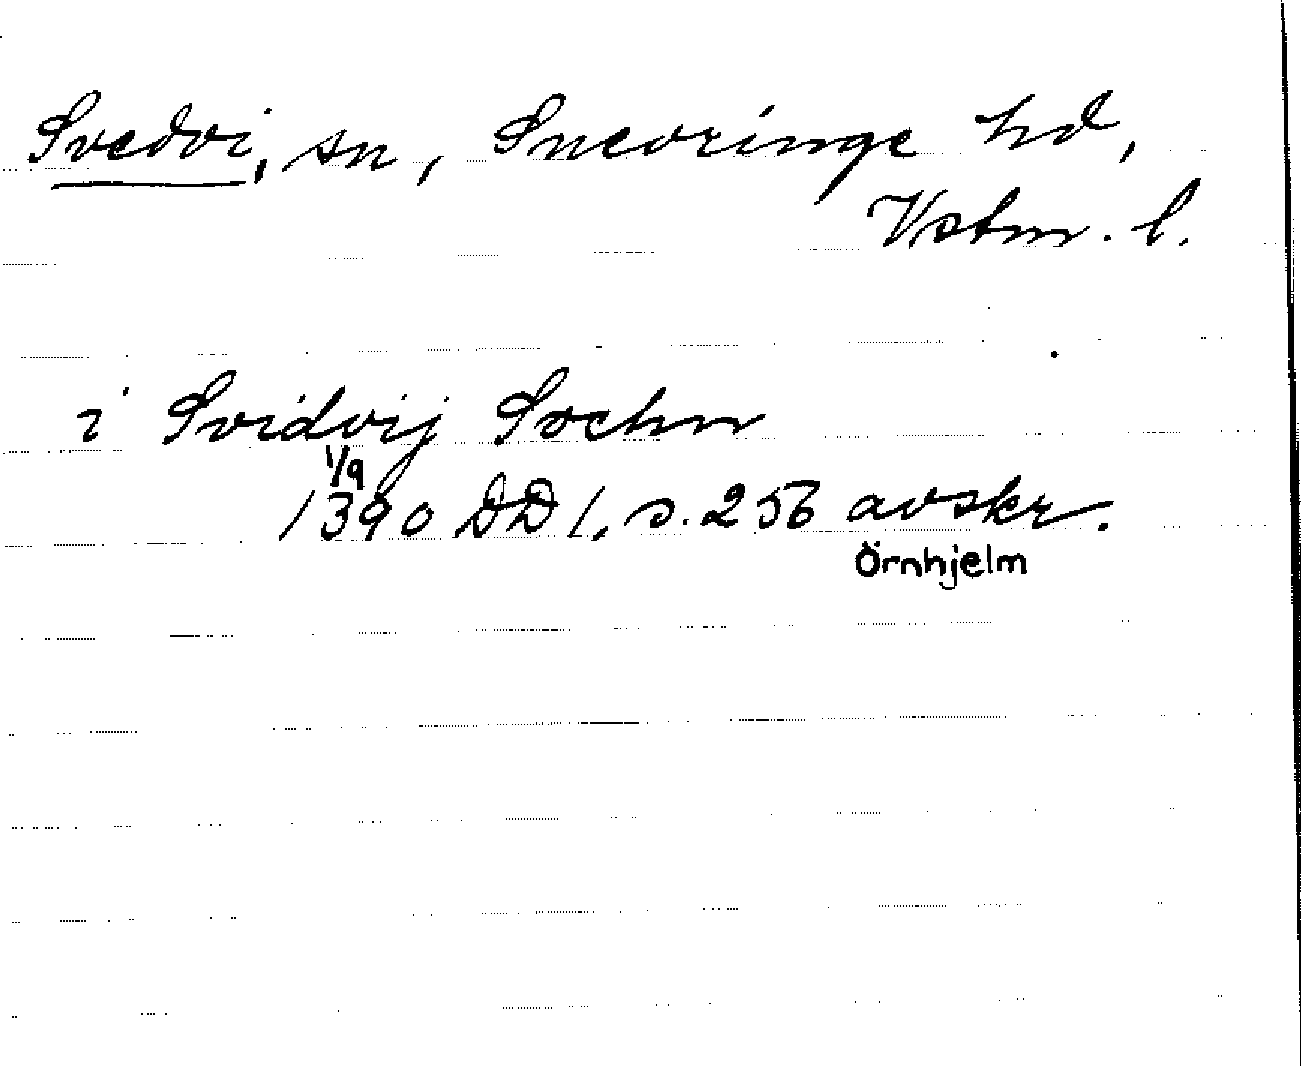 Svedvi, sn, Snevringe hd,
Vstm. l.
i Svidvij Sochn
1/9
1390 DD 1, s. 256 avskr.
Örnhjelm